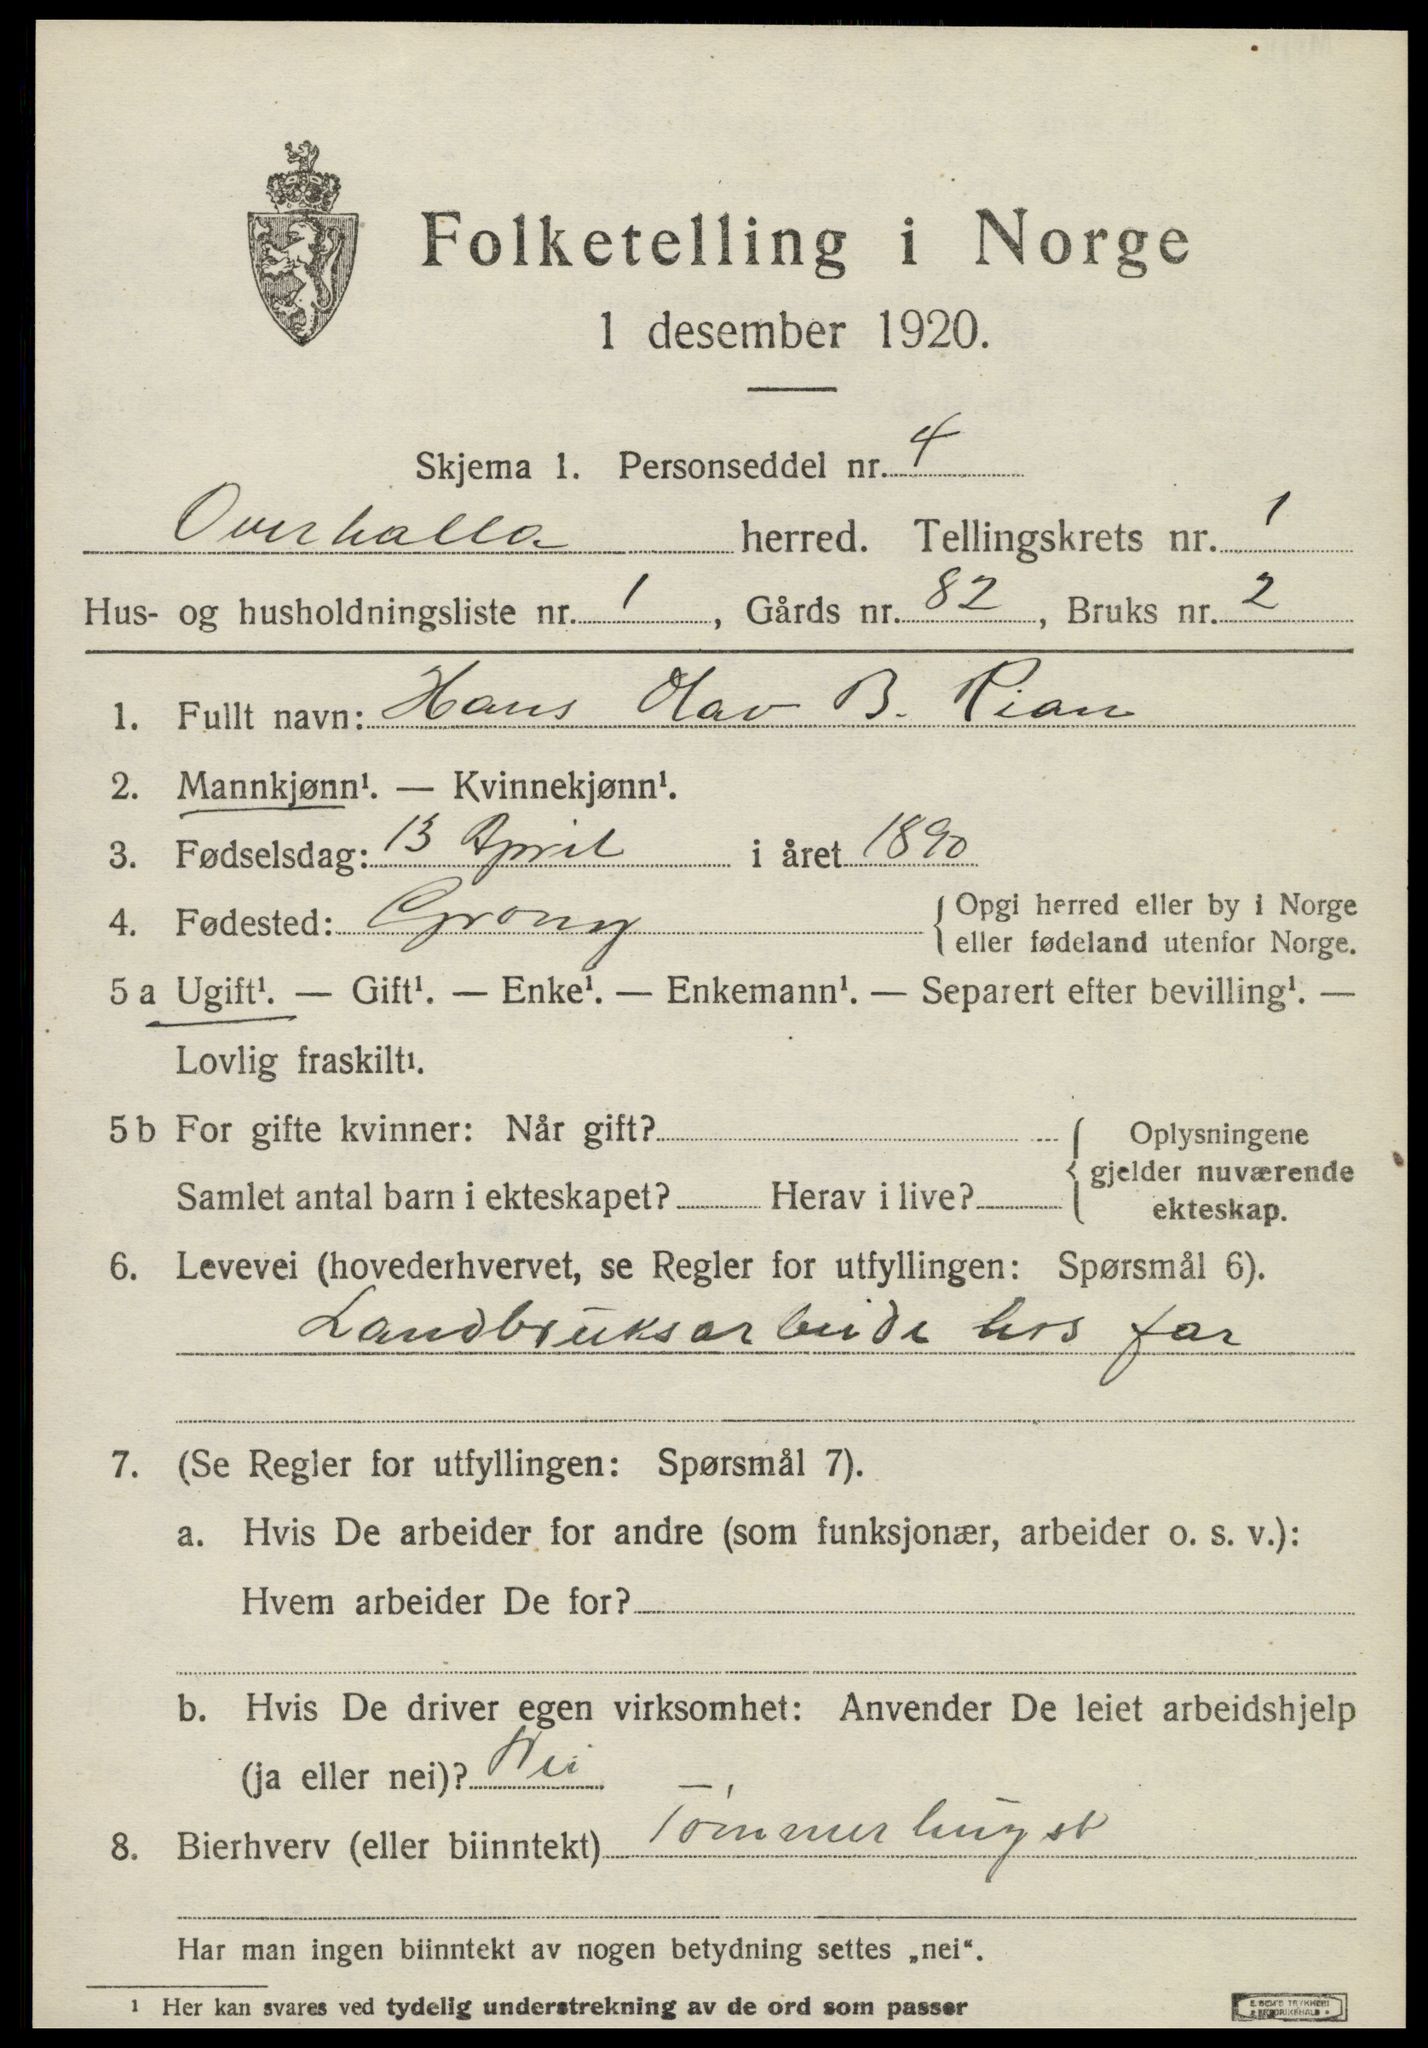 Folketelling i Norge
1 desember 1920.
Skjema 1. Personseddel nr. 4
Overhalla herred. Tellingskrets nr. 1
Hus- og husholdningsliste nr. 1, Gårds nr. 82, Bruks nr. 2
1. Fullt navn: Hans Olav B. Rian
2. Mannkjønn¹. — Kvinnekjønn¹.
3. Fødselsdag: 13 April i året 1890
4. Fødested: Grong { Opgi herred eller by i Norge
eller fødeland utenfor Norge.
5 a Ugift¹. — Gift¹. — Enke¹. — Enkemann¹. — Separert efter bevilling¹. —
Lovlig fraskilt¹.
5 b For gifte kvinner: Når gift? { Oplysningene
gjelder nuværende
Samlet antal barn i ekteskapet? Herav i live? ekteskap.
6. Levevei (hovederhvervet, se Regler for utfyllingen: Spørsmål 6).
Landbruksarbeide hos far
7. (Se Regler for utfyllingen: Spørsmål 7).
a. Hvis De arbeider for andre (som funksjonær, arbeider o. s. v.):
Hvem arbeider De for?
b. Hvis De driver egen virksomhet: Anvender De leiet arbeidshjelp
(ja eller nei)? Nei
8. Bierhverv (eller biinntekt) Tömmerhugst
Har man ingen biinntekt av nogen betydning settes „nei“.
¹ Her kan svares ved tydelig understrekning av de ord som passer